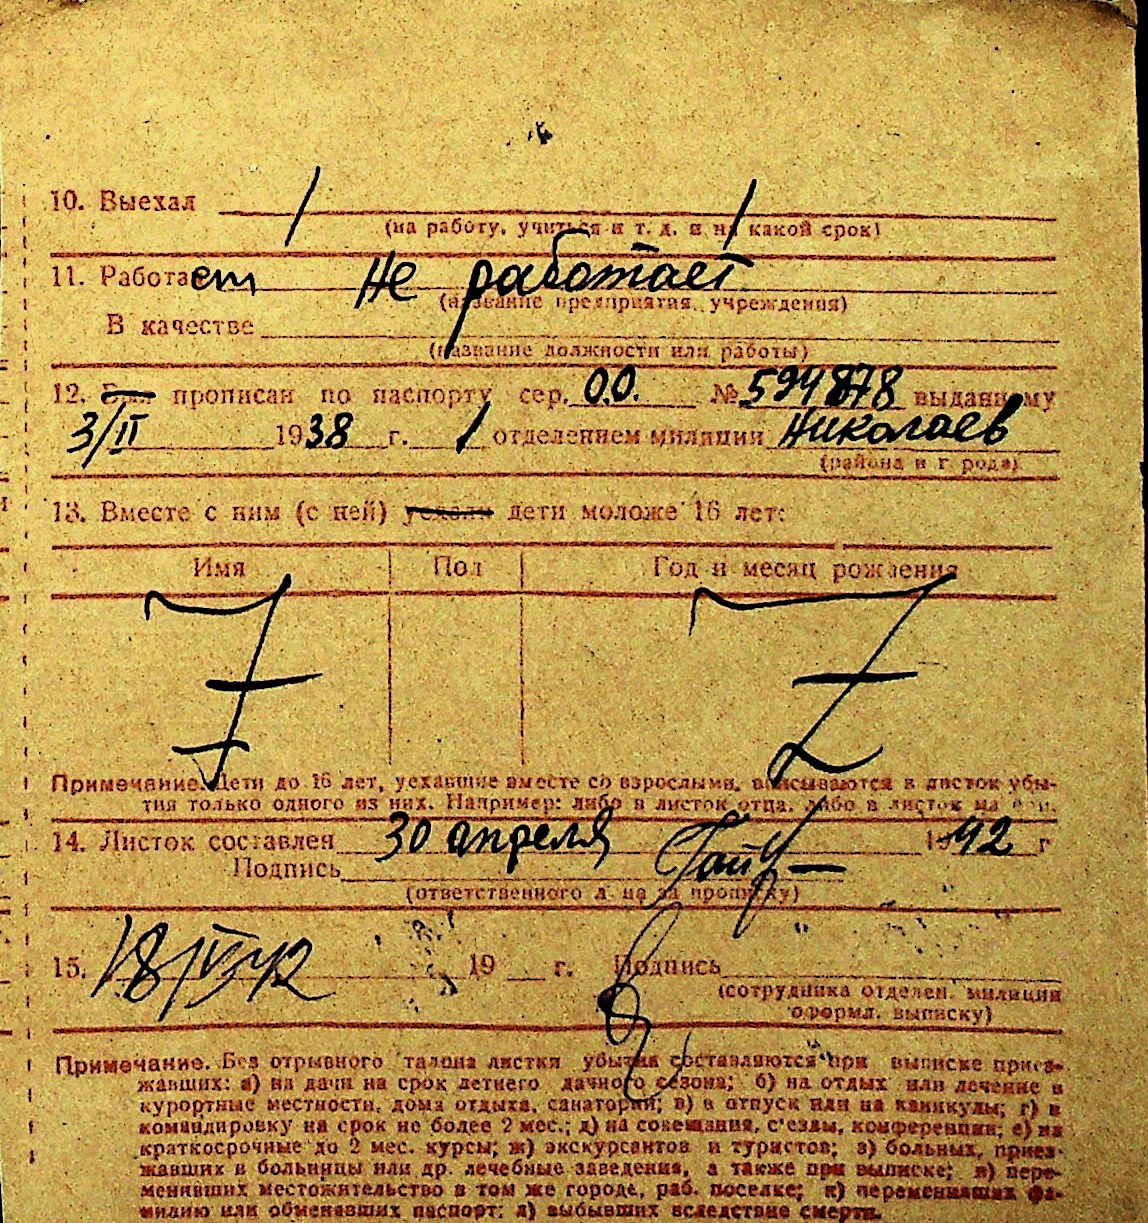 10. Выехал
(на работу, учиться и т. д. и на какой срок)
11. Работает Не работает
(название предприятия, учреждения)
В качестве
(название должности или работы)
12. прописан по паспорту сер. 00. № 594878 выданному
3/II 1938 г. 1 отделением милиции Николаев
(района и города)
13. Вместе с ним (с ней) уехали дети моложе 16 лет:
Имя Пол Год и месяц рождения
Z Z
Примечание. Дети до 16 лет, уехавшие вместе со взрослыми, вписываются в листок убы-
тия только одного из них. Например: либо в листок отца, либо в листок матери.
14. Листок составлен 30 апреля 1942 г
Подпись
(ответственного лица за прописку)
15. 19 г. Подпись
(сотрудника отделен. милиции
оформл. выписку)
Примечание. Без отрывного талона листки убытия составляются при выписке приез-
жавших: а) на дачи на срок летнего дачного сезона; б) на отдых или лечение в
курортные местности, дома отдыха, санатории; в) в отпуск или на каникулы; г) в
командировку на срок не более 2 мес.; д) на совещания, с'езды, конференции; е) на
краткосрочные до 2 мес. курсы; ж) экскурсантов и туристов; з) больных, приез-
жавших в больницы или др. лечебные заведения, а также при выписке; и) пере-
менивших местожительство в том же городе, раб. поселке; к) переменивших фа-
милию или обменявших паспорт; л) выбывших вследствие смерти.